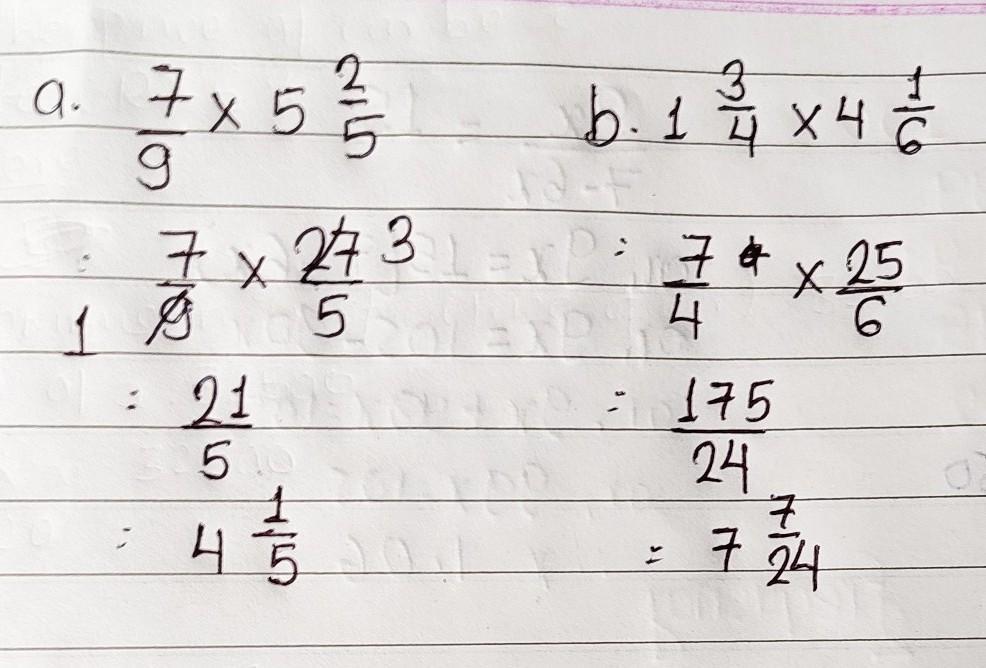 a. 7/9 x 5 2/5
: 7/9 x 27/5 3
1
: 21/5
: 4 1/5
b. 1 3/4 x 4 1/6
: 7/4 x 25/6
= 175/24
= 7 7/24